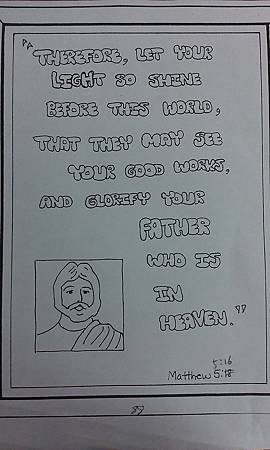 "THEREFORE, LET YOUR
LIGHT SO SHINE
BEFORE THIS WORLD,
THAT THEY MAY SEE
YOUR GOOD WORKS,
AND GLORIFY YOUR
FATHER
WHO IS
IN
HEAVEN."
5:16
Matthew 5:18